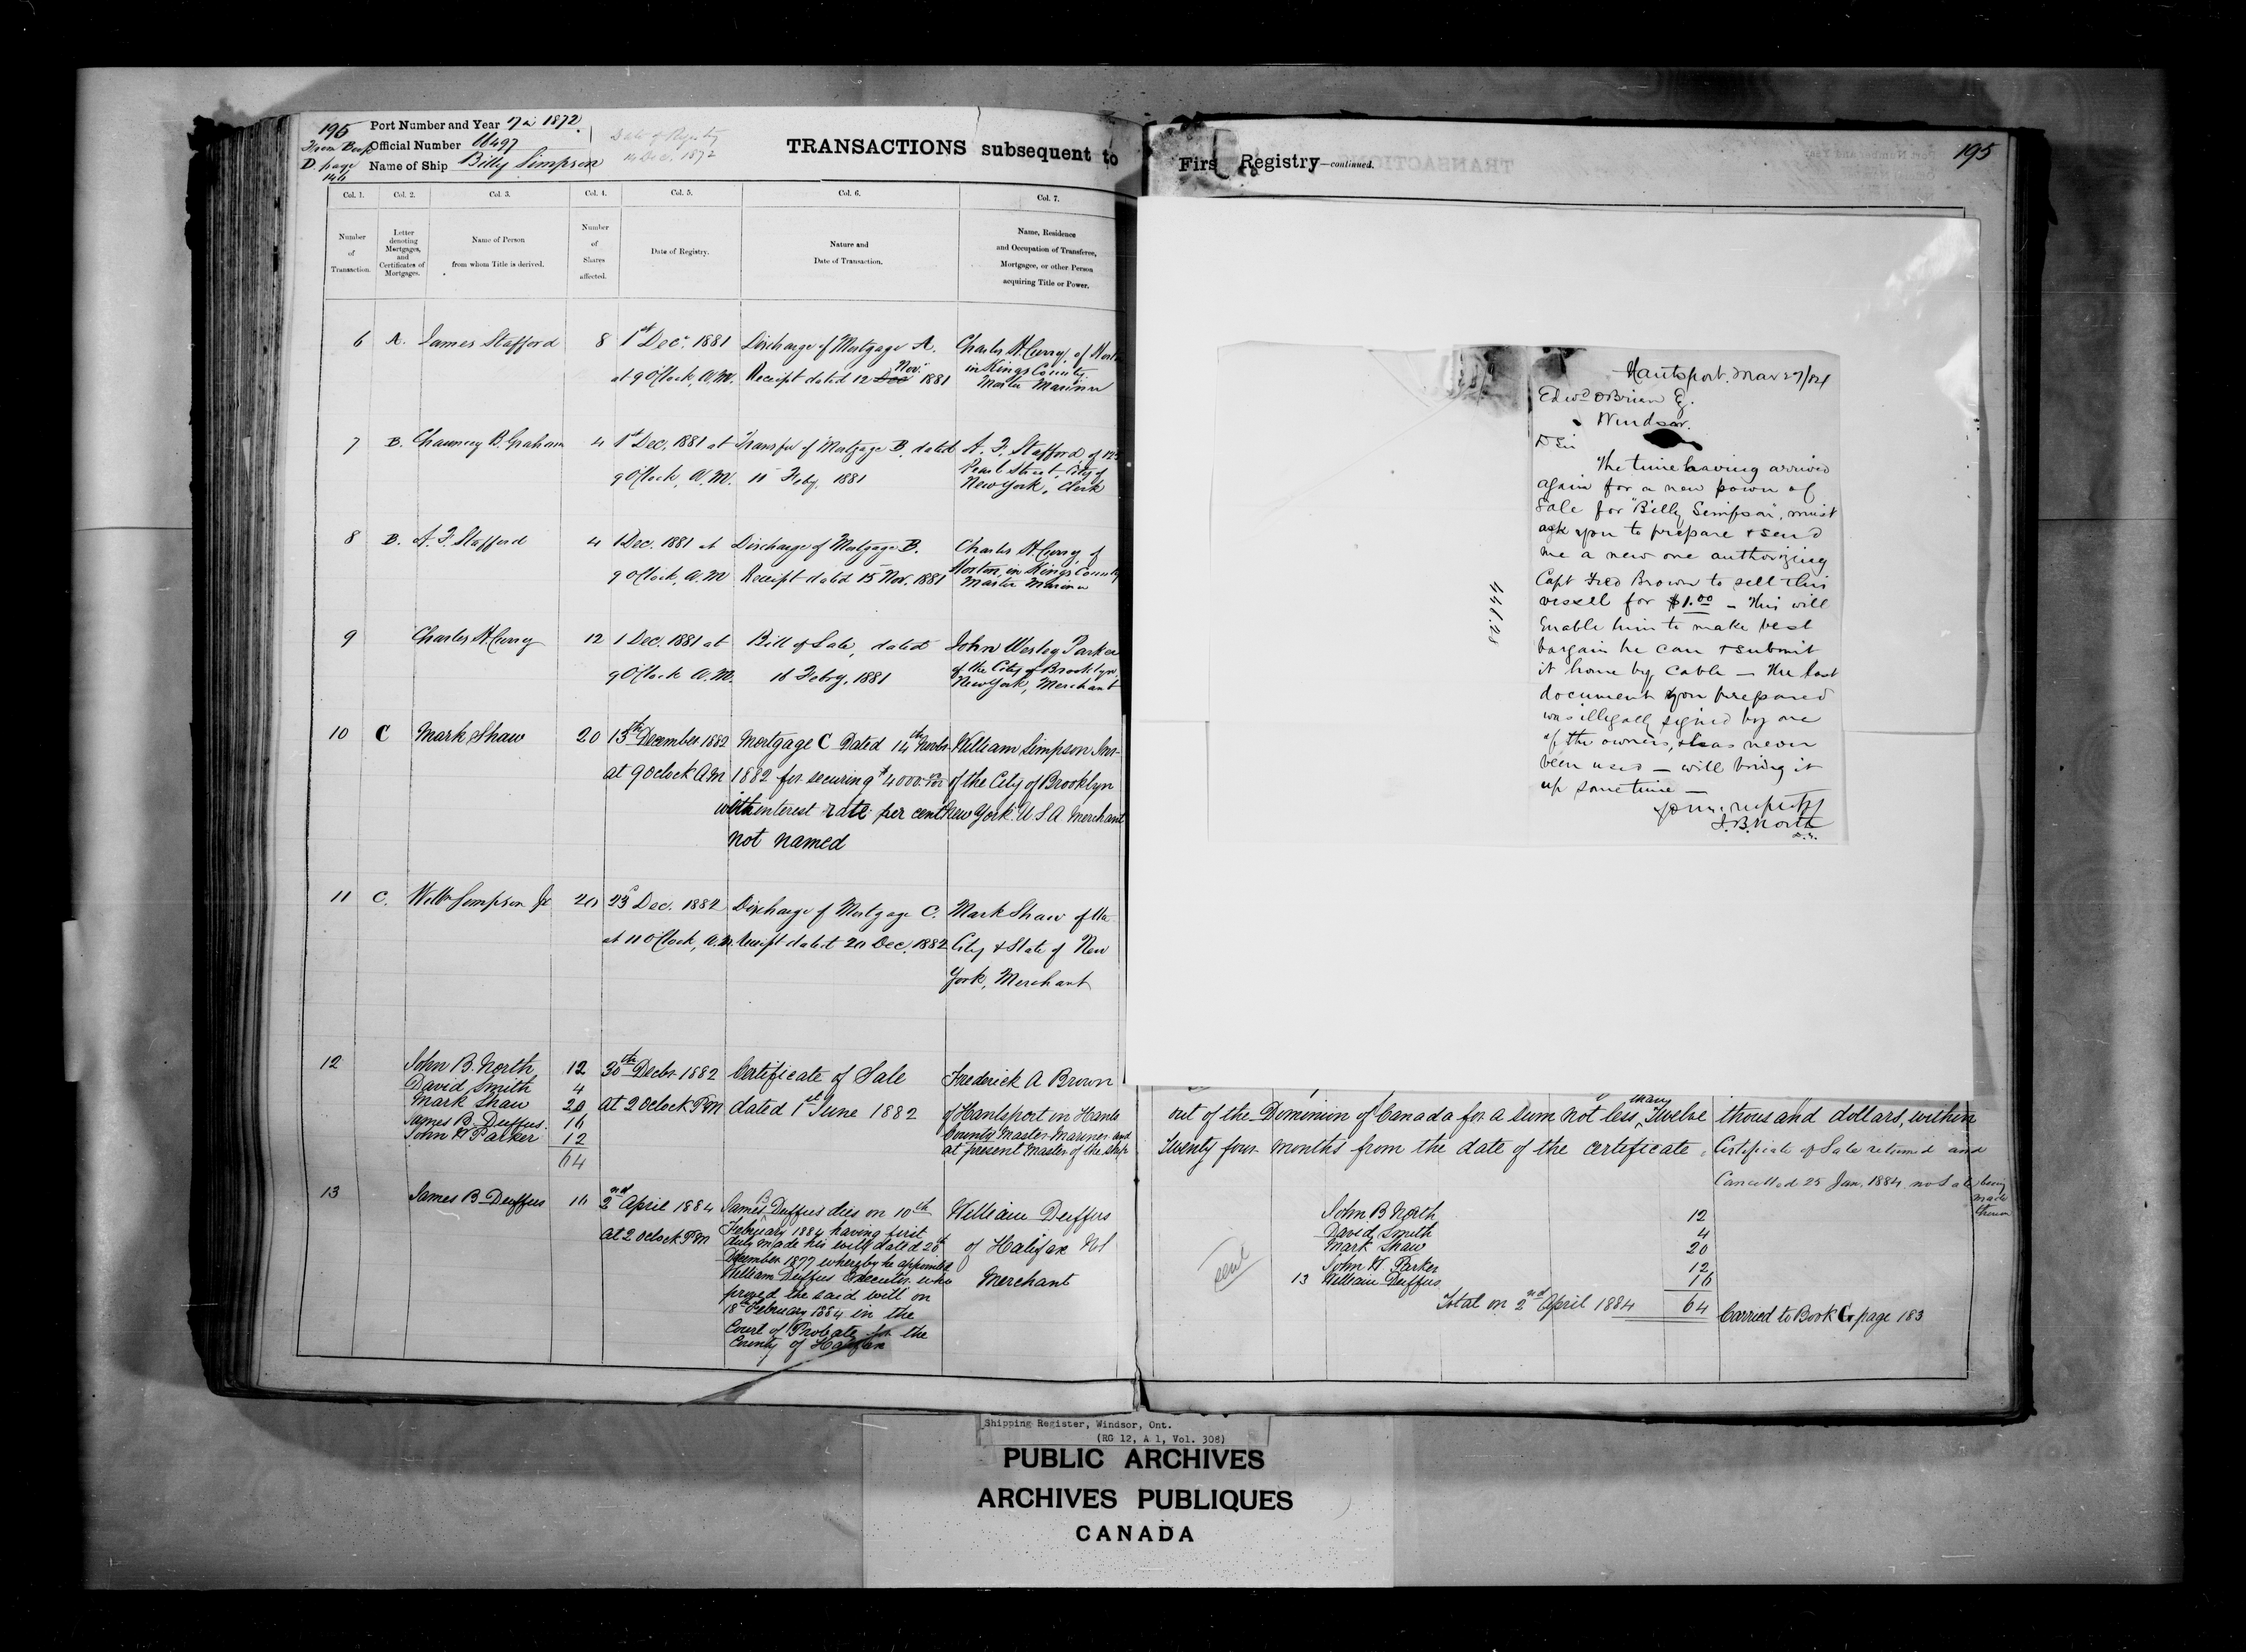 195
From Book
D. page
Port Number and Year 7 in 1872.
Official Number 66497
Name of Ship Billy Simpson
Date of Registry
14 Dec. 1872
TRANSACTIONS subsequent to
Firs Registry—continued.
195
Col. 1. Col. 2. Col. 3. Col. 4. Col. 5. Col. 6. Col. 7.
Number of Transaction.
Letter denoting Mortgages, and Certificates of Mortgages.
Name of Person from whom Title is derived.
Number of Shares affected.
Date of Registry.
Nature and Date of Transaction.
Name, Residence and Occupation of Transferee, Mortgagee, or other Person acquiring Title or Power.
6 A. James Stafford 8 1st Dec. 1881 Discharge of Mortgage A. Charles H. Curry, of Horton
at 9 O'Clock, A.M. Receipt dated 12 Dec Nov. 1881 in Kings County
Master Mariner
7 B. Chauncey B. Graham 4 1st Dec. 1881 at Transfer of Mortgage B. dated A. F. Stafford, of
9 O'Clock, A.M. 11 Feby. 1881 Pearl Street City of
New York, Clerk
8 B. A. F. Stafford 4 1 Dec. 1881 at Discharge of Mortgage B. Charles H. Curry of
9 O'Clock, A.M Receipt dated 15 Nov. 1881 Horton, in Kings County
Master Mariner
9 Charles H. Curry 12 1 Dec. 1881 at Bill of Sale, dated John Wesley Parker
9 O'Clock A.M. 16 Feby, 1881 of the City of Brooklyn,
New York, Merchant
10 C Mark Shaw 20 13th December 1882 Mortgage C Dated 14th Novbr William Simpson Jnr
at 9 Oclock AM 1882 for securing $4000.00 of the City of Brooklyn
with interest rate per cent New York. U S A Merchant
not named
11 C. Willm Simpson Jr 20 23d Dec. 1882 Discharge of Mortgage C. Mark Shaw of the
at 11 O'Clock, A.M. Receipt dated 20 Dec. 1882 City & State of New
York, Merchant
12 John B. North 12 30th Decbr 1882 Certificate of Sale Frederick A Brown
David Smith 4
Mark Shaw 20 at 2 Oclock PM dated 1st June 1882 of Hantsport in Hants
James B. Duffus. 16 County Master Mariner and
John W Parker 12 at present Master of the ship
64
13 James B Duffus 16 2nd April 1884 James B Duffus dies on 10th William Duffus
at 2 oclock PM February 1884 having first
duly made his will dated 26th of Halifax NS
December 1877 whereby he appointed
William Duffus Executor who Merchant
proved the said will on
18th February 1884 in the
Court of Probate for the
County of Halifax
Hantsport. Mar 27/84
Edwd OBrian Eq.
Windsor.
D Sir
The time having arrived
again for a new power of
Sale for "Billy Simpson", must
ask you to prepare & send
me a new one authorizing
Capt Fred Brown to sell this
vessel for $1.00 — This will
Enable him to make best
bargain he can & submit
it home by Cable — The last
document you prepared
was illegally signed by one
of the owners, & has never
been used — will bring it
up sometime —
Yours respectf
J. B. North
out of the Dominion of Canada for a sum not less than Twelve thousand dollars, within
Twenty four months from the date of the certificate. Certificate of Sale returned and
Cancelled 25 Jan. 1884 no Sale being
made
thereon
John B North 12
David Smith 4
Mark Shaw 20
John W. Parker 12
13 William Duffus 16
Total on 2nd April 1884 64 Carried to Book G page 183
Shipping Register, Windsor, Ont.
(RG 12, A 1, Vol. 308)
PUBLIC ARCHIVES
ARCHIVES PUBLIQUES
CANADA